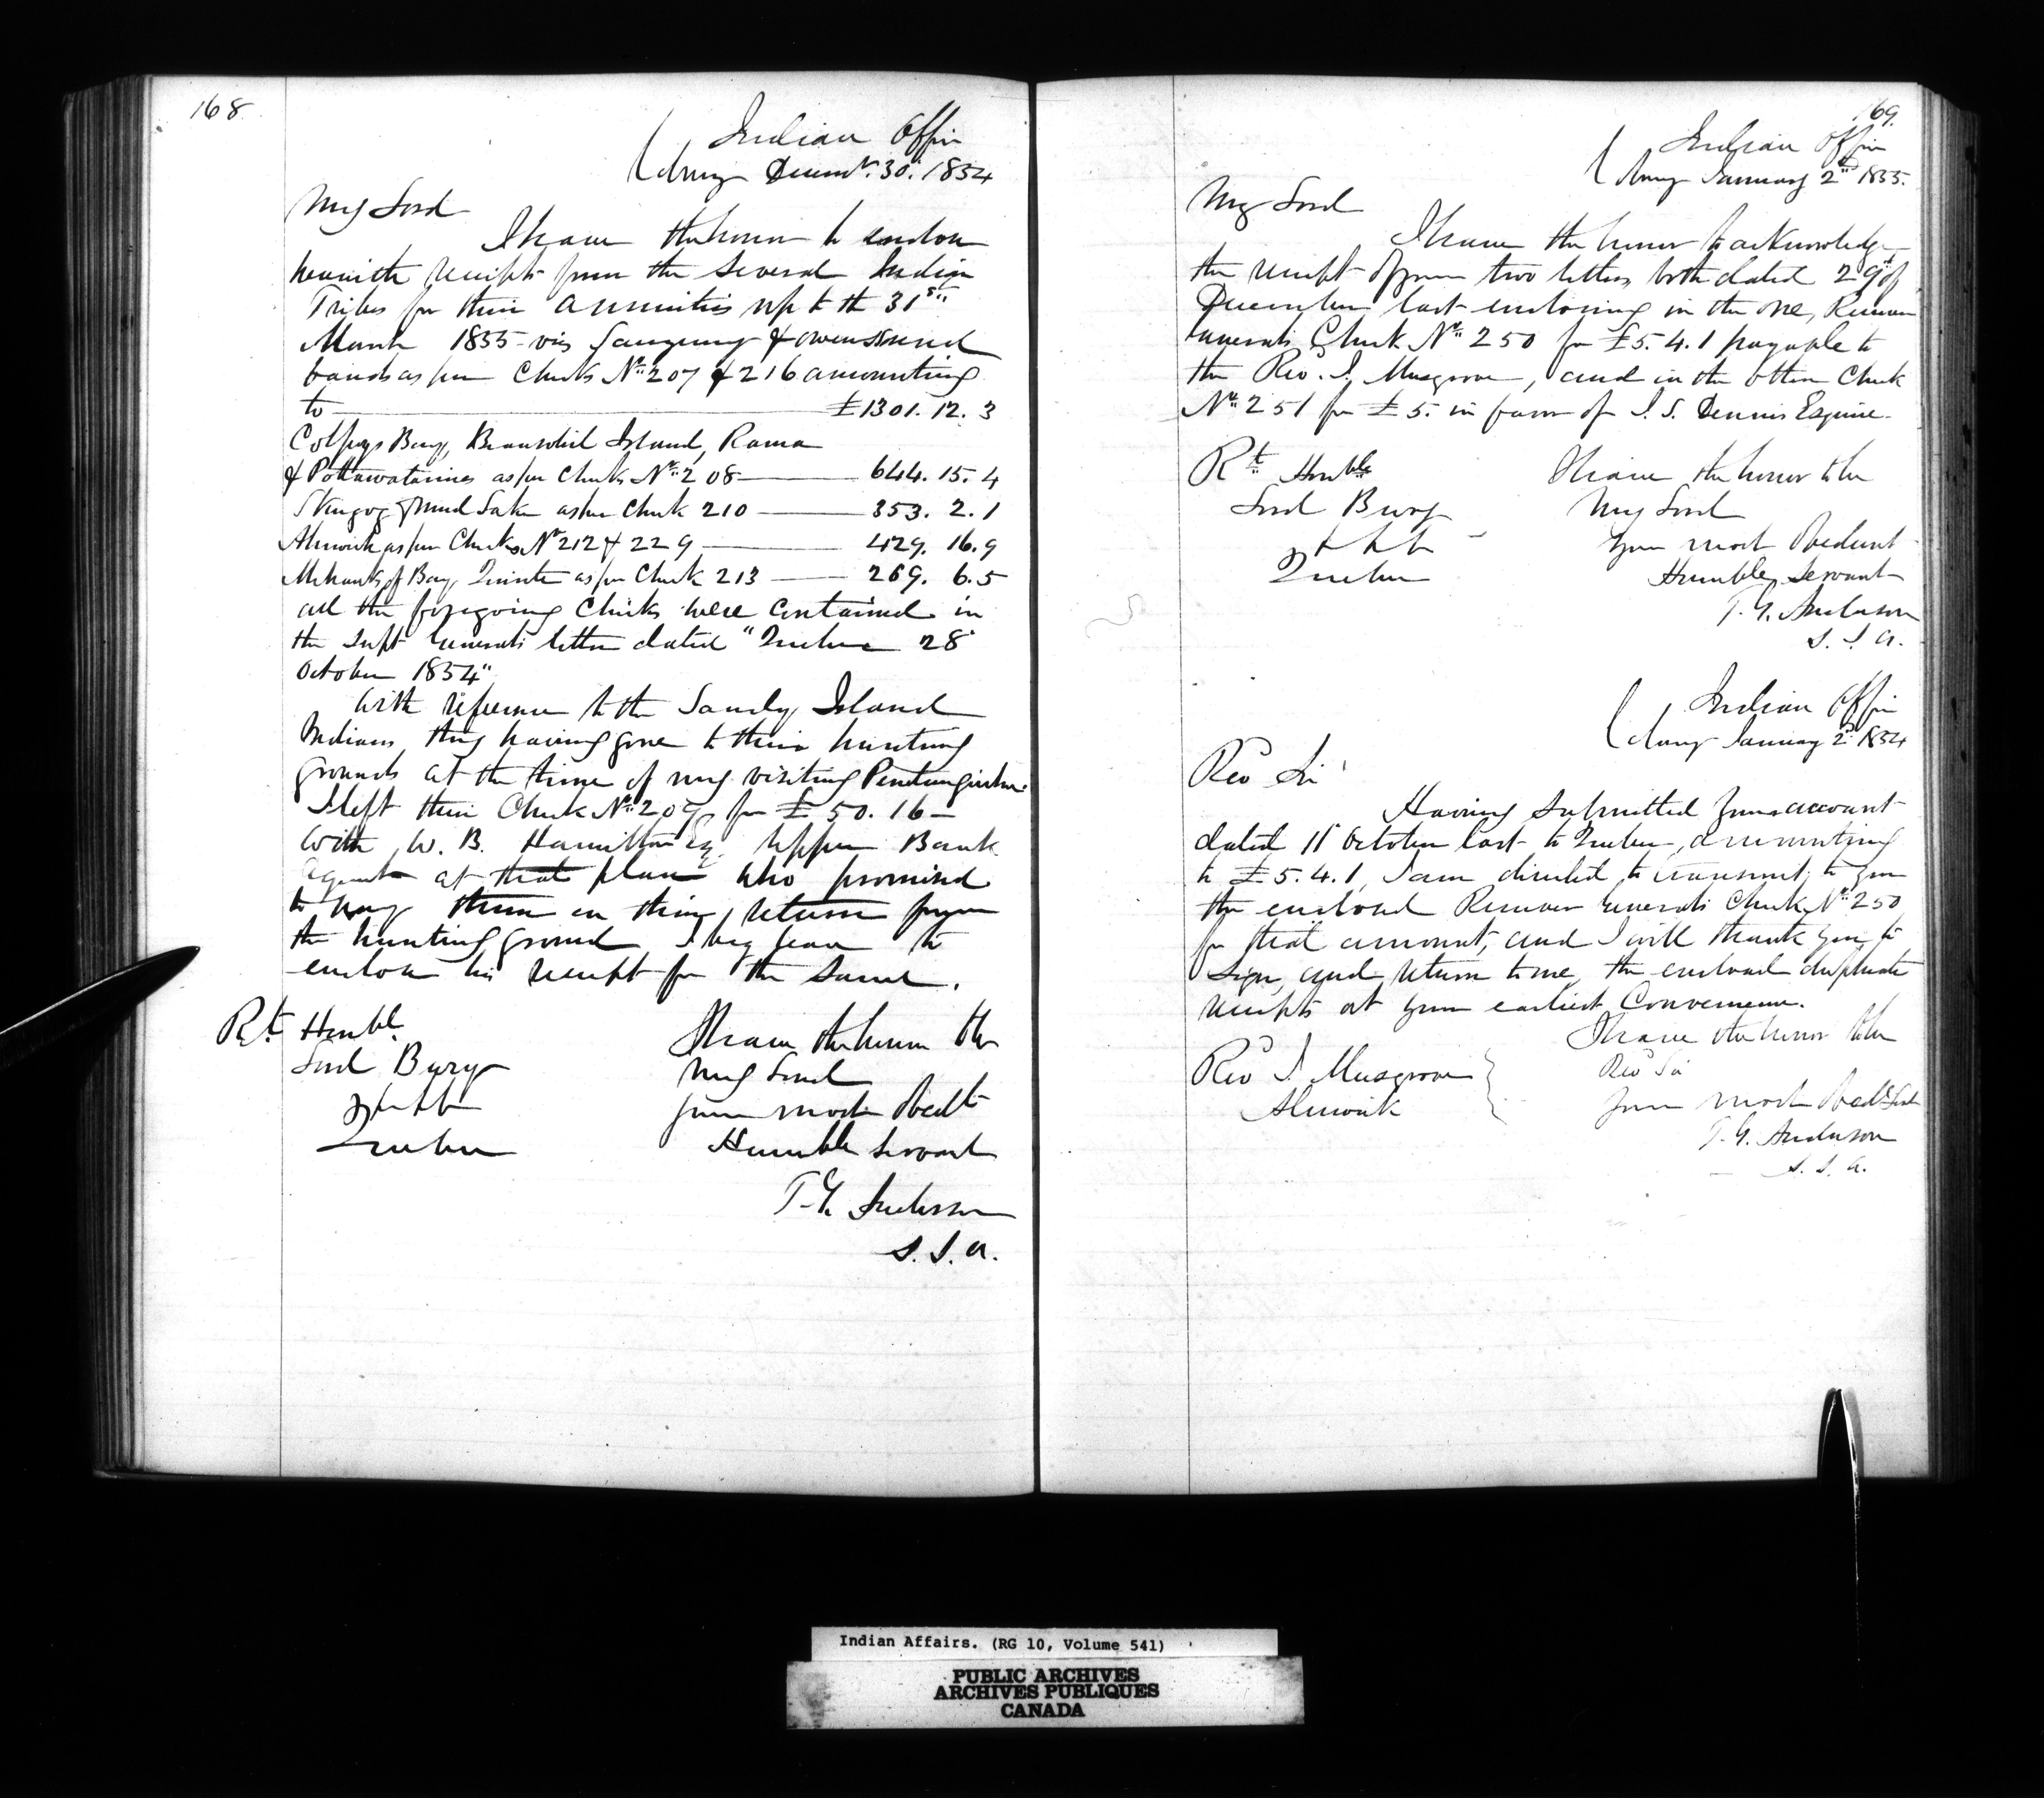 168
Indian Office
Cobourg Decembr. 30. 1854
My Lord
I have the honor to enclose
herewith receipts from the several Indian
Tribes for their annuities up to the 31st
March 1855 viz Saugeeng & Owen Sound
bands as per Checks No. 207 & 216 amounting
to £1301. 12. 3
Colpoys Bay, Beausoliel Island, Rama
& Pottawatamies as per Checks No. 208 644. 15. 4
Skugog & Mud Lake as per Check 210 353. 2. 1
Alnwick as per Checks No 212 & 229 429. 16. 9
Mohawks of Bay Quinte as per Check 213 269. 6. 5
all the foregoing Checks were contained in
the Supt Generals letter dated "Quebec 28
October 1854"
With reference to the Sandy Island
Indians, they having gone to their hunting
grounds at the time of my visiting Penetanguishene
I left their Check No. 209 for £50. 16 –
with W. B. Hamilton Esq. Upper Bank
Agent at that place who promised
to pay them on their return from
the hunting ground I beg leave to
enclose his receipt for the same.
Rt. Honble.
Lord Bury
Quebec
I have the honor to be
My Lord
Your most Obedt
Humble Servant
T. G. Anderson
S. I. A.
169.
Indian Office
Cobourg January 2nd 1855.
My Lord
I have the honor to acknowledge
the receipt of your two letters both dated 29th of
December last enclosing in the one, Receiver
Generals Check No. 250 for £5. 4. 1 payable to
the Rev. J. Musgrove, and in the other Check
No. 251 for £5. in favor of J. S. Dennis Esquire.
Rt. Honble
Lord Bury
Quebec
I have the honor to be
My Lord
Your most Obedient
Humble Servant
T. G. Anderson
S. I. A.
Indian Office
Cobourg January 2d. 1854
Revd Sir
Having submitted your account
dated 11 October last to Quebec, amounting
to £5. 4. 1, I am directed to transmit to you
the enclosed Receiver Generals Check No. 250
for that amount, and I will thank you to
sign and return to me, the enclosed duplicate
receipts at your earliest Convenience.
Revd J. Musgrove
Alnwick
I have the honor to be
Revd Sir
Your most Obedt Servt
T. G. Anderson
S. I. A.
Indian Affairs. (RG 10, Volume 541)
PUBLIC ARCHIVES
ARCHIVES PUBLIQUES
CANADA